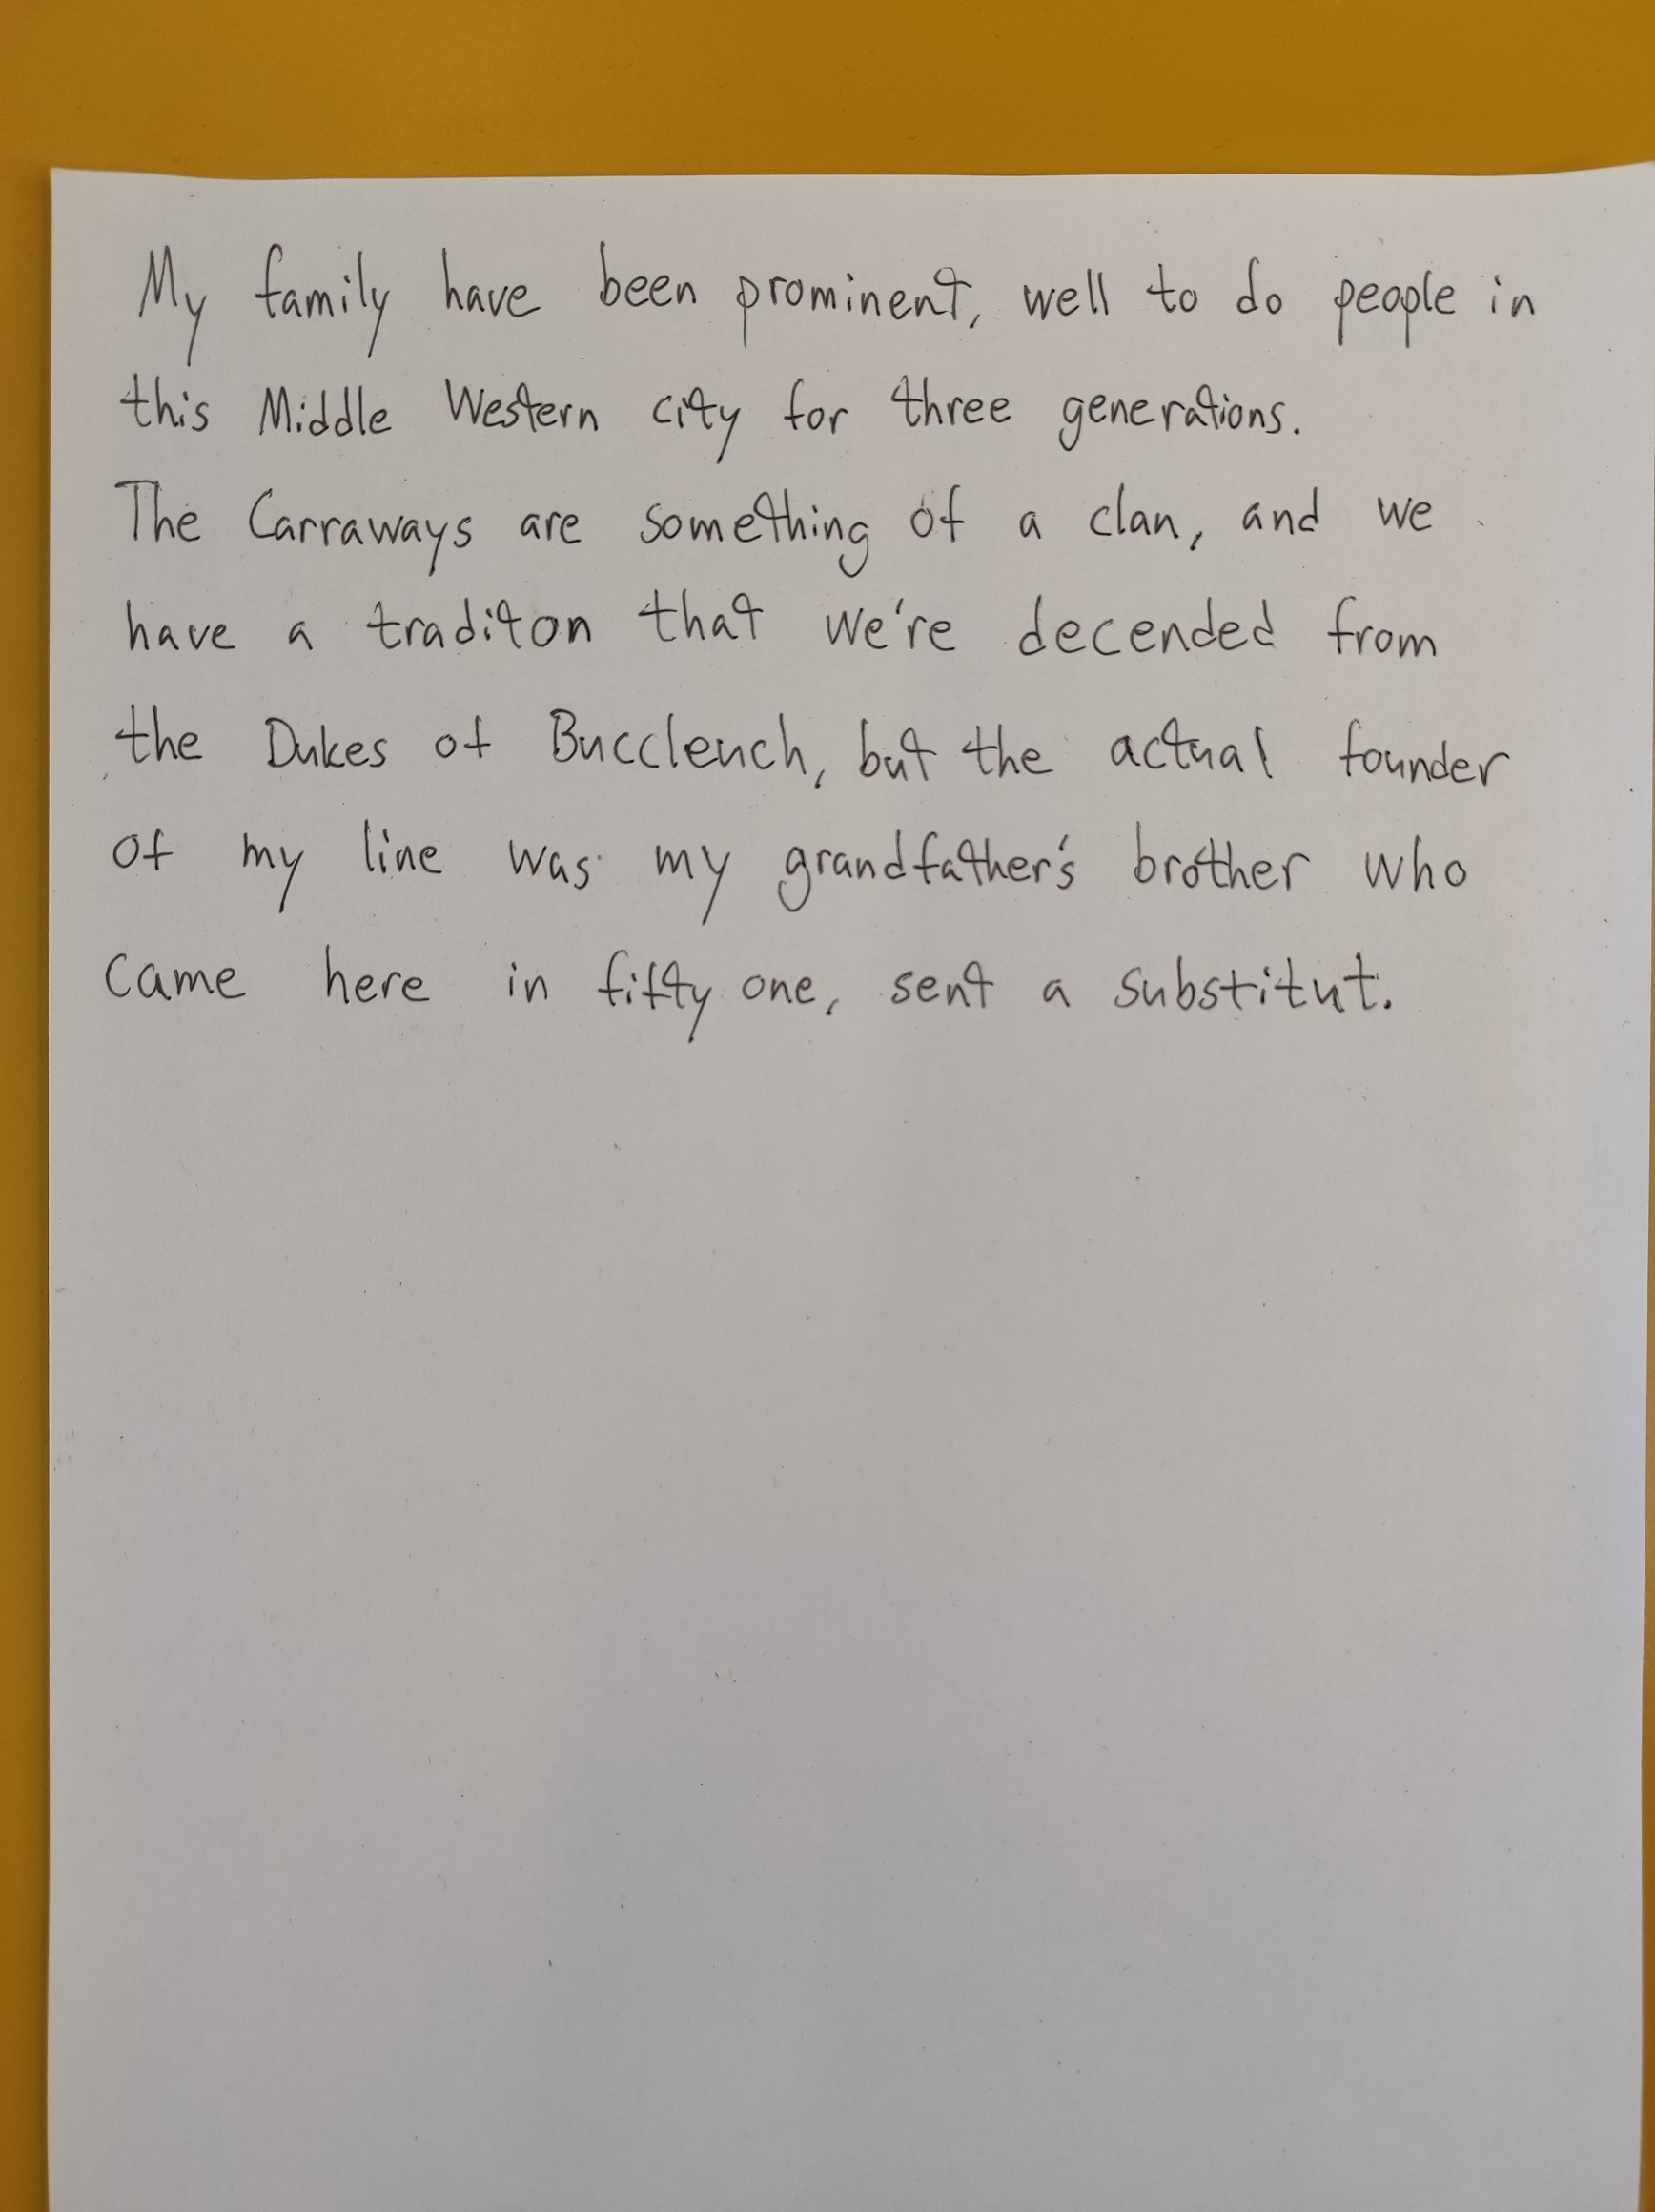 My family have been prominent, well to do people in
this Middle Western city for three generations.
The Carraways are something of a clan, and we
have a traditon that we're decended from
the Dukes of Buccleuch, but the actual founder
of my line was my grandfather's brother who
came here in fifty one, sent a substitut.